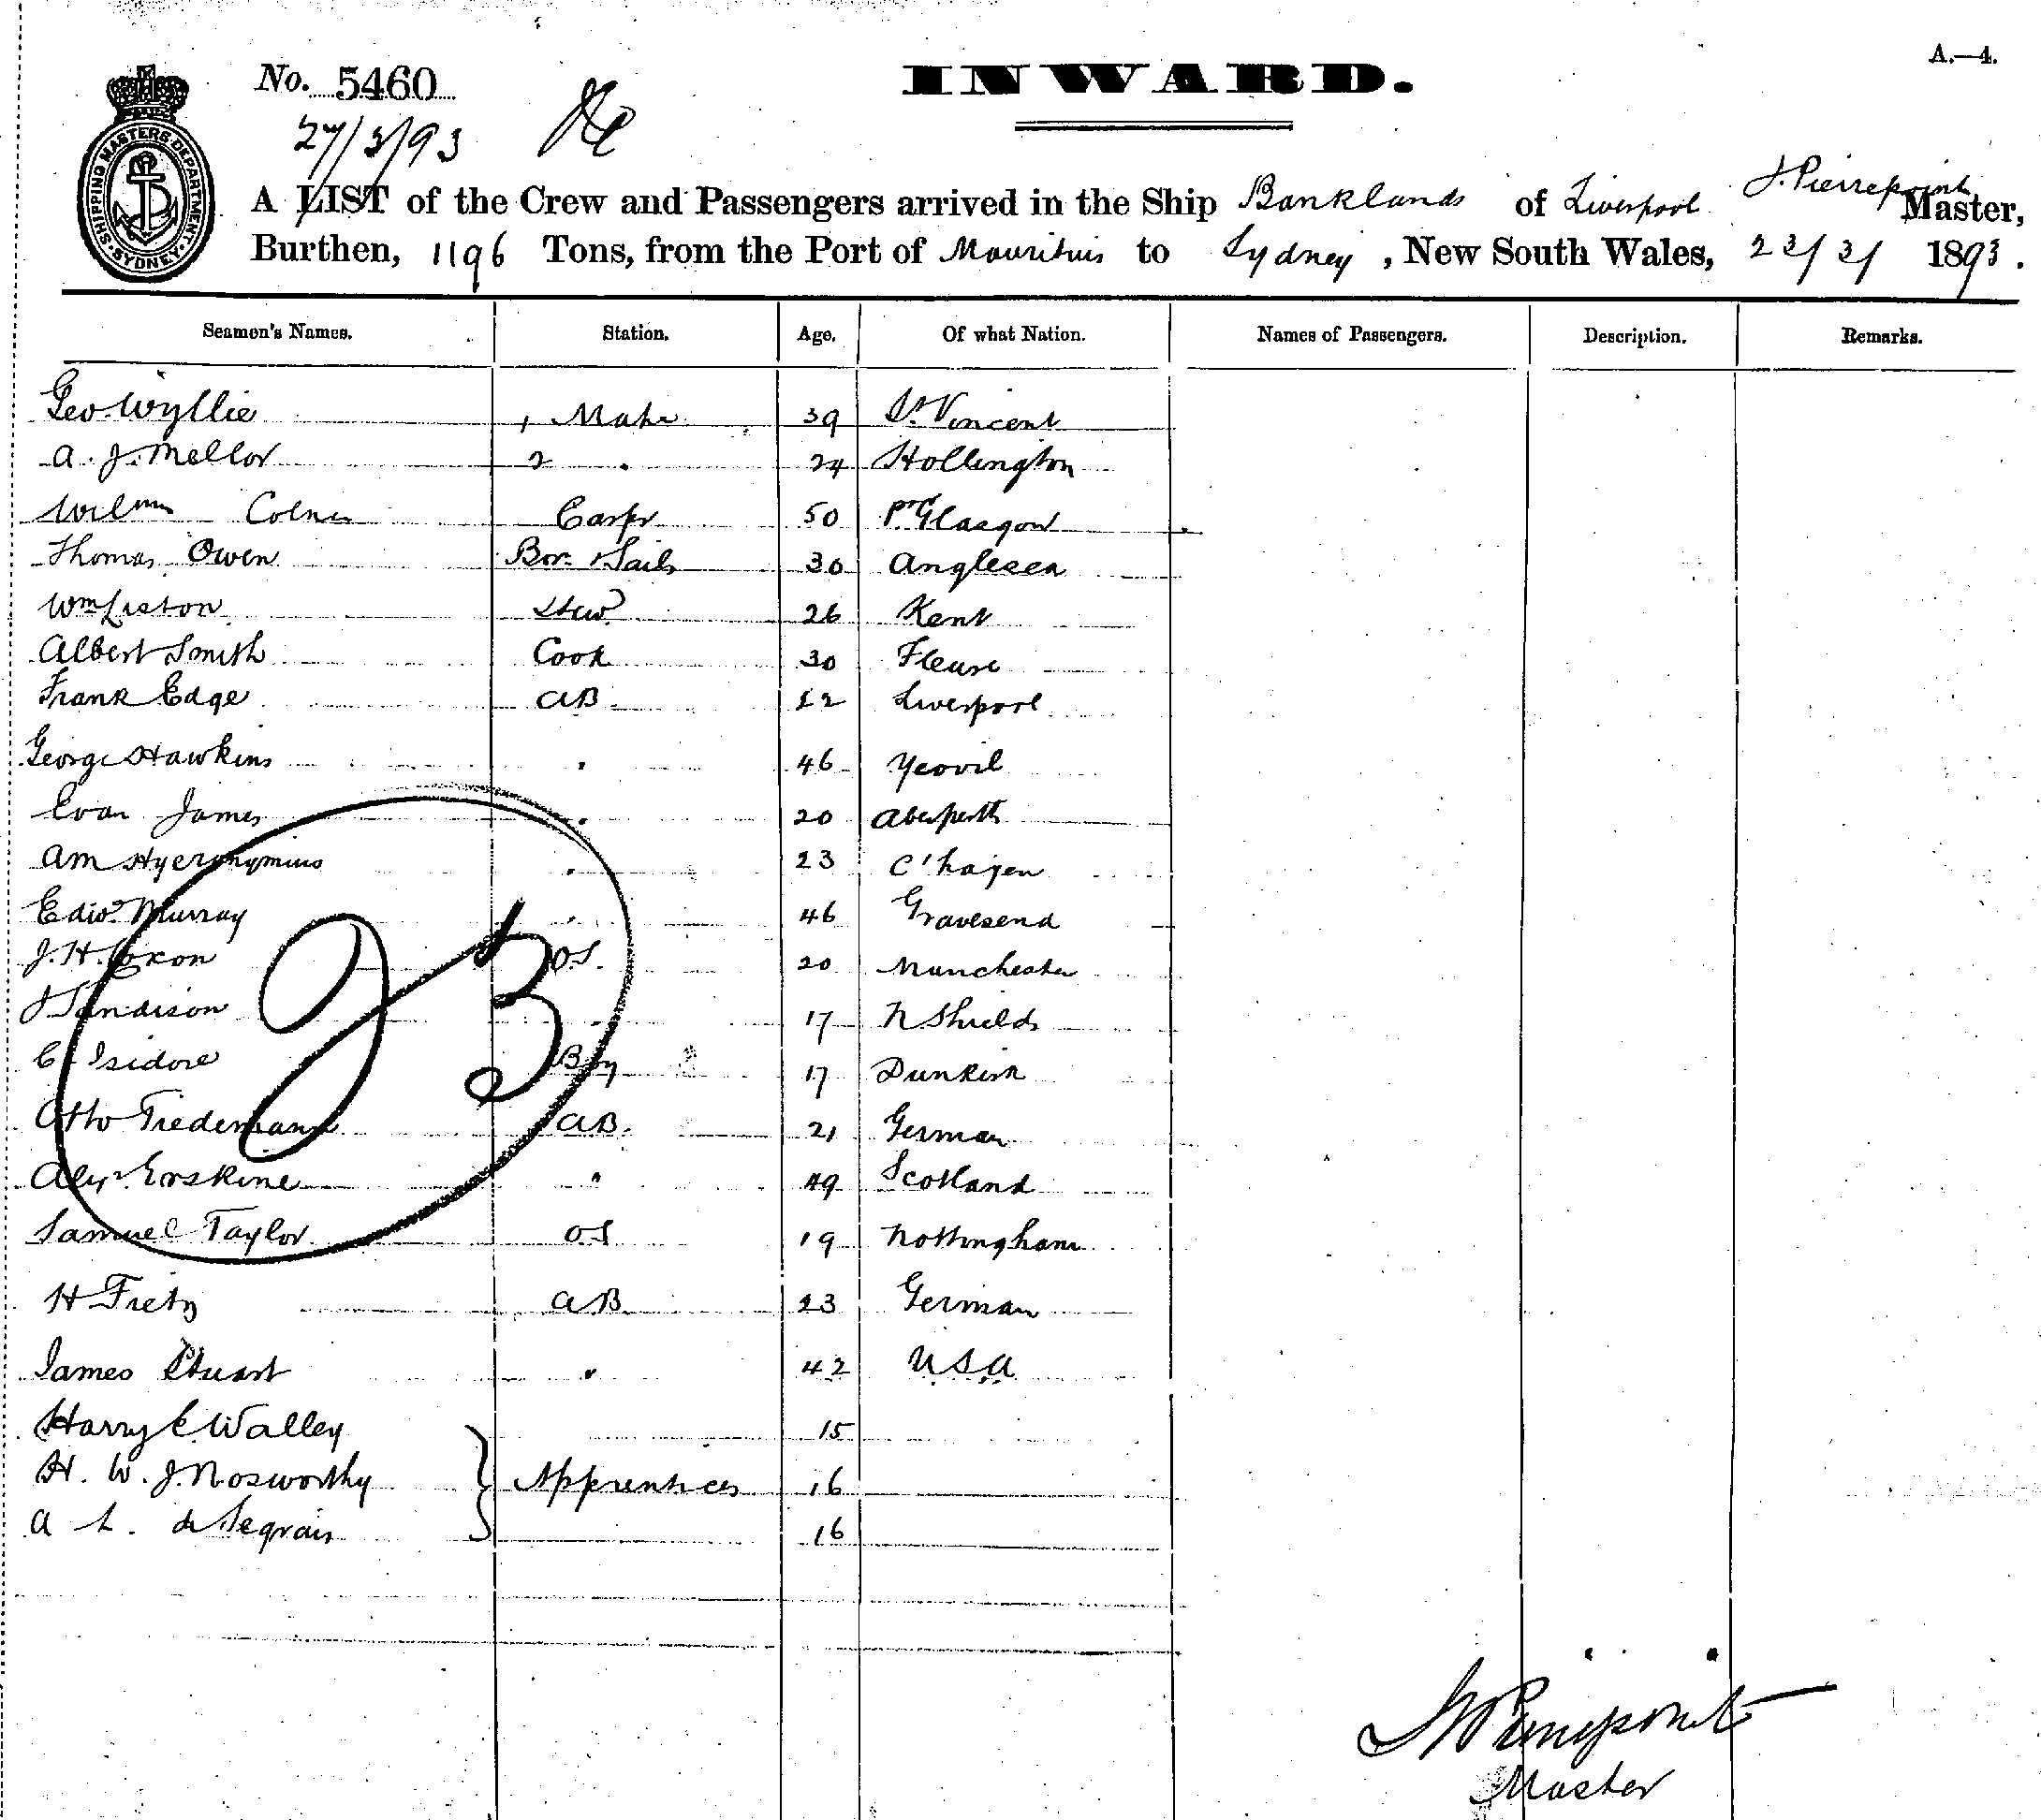 A.—4.
No. 5460
INWARD.
27/3/93
SHIPPING MASTERS DEPARTMENT SYDNEY
A LIST of the Crew and Passengers arrived in the Ship Banklands of Liverpool J. Pierrepoint Master,
Burthen, 1196 Tons, from the Port of Mauritius to Sydney, New South Wales, 23/3/ 1893.
Seamen's Names. Station. Age. Of what Nation. Names of Passengers. Description. Remarks.
Geo. Wyllie 1 Mate 39 St. Vincent
A. J. Mellor 2 " 24 Hollington
Wilm Carpr 50 Pt Glasgow
Thomas Owen Bon & Sails 30 Anglesea
Wm Liston Stew 26 Kent
Albert Smith Cook 30
Frank Edge AB 22 Liverpool
George Hawkins " 46 Yeovil
Evan James " 20 Aberporth
Am Hyeronymius " 23 C'hagen
Edwd Murray " 46 Gravesend
J. H. Coxon O.S. 20 Manchester
J Sandison " 17 N Shields
C. Isidore Boy 17 Dunkirk
Otto Tiedemann AB. 21 German
Alexr. Erskine " 49 Scotland
Samuel Taylor OS 19 Nottingham
H Fietz AB 23 German
James Stuart " 42 USA
Harry C Walley 15
H. W. J. Nosworthy Apprentices 16
A L. de Segrais 16
93
J Pierrepoint
Master